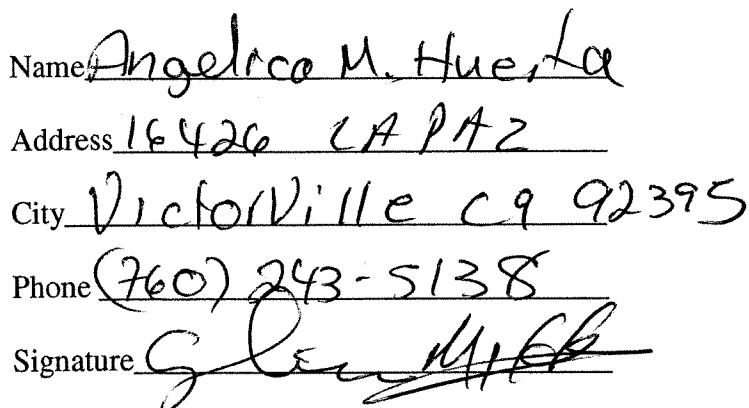 Name Angelica M. Huerta
Address 16426 LA PAZ
City Victorville ca 92395
Phone (760) 243-5138
Signature